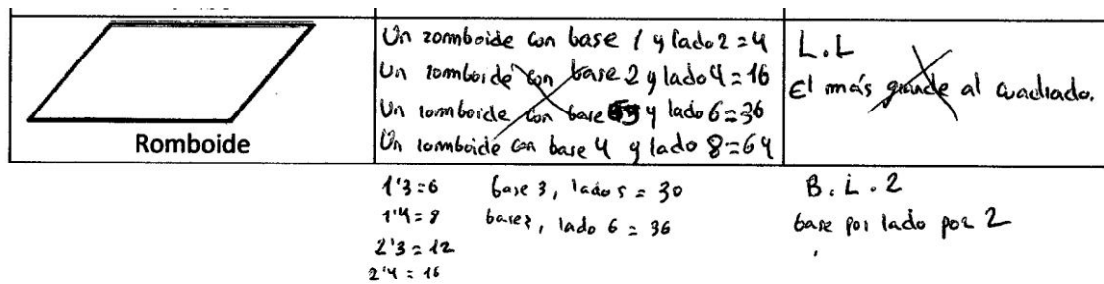 Romboide
Un romboide con base 1 y lado 2 = 4
Un romboide con base 2 y lado 4 = 16
Un romboide con base 3 y lado 6 = 36
Un romboide con base 4 y lado 8 = 64
L.L
El más grande al cuadrado.
1'3 = 6
1'4 = 8
2'3 = 12
2'4 = 16
base 3, lado 5 = 30
base 3, lado 6 = 36
B.L.2
base por lado por 2